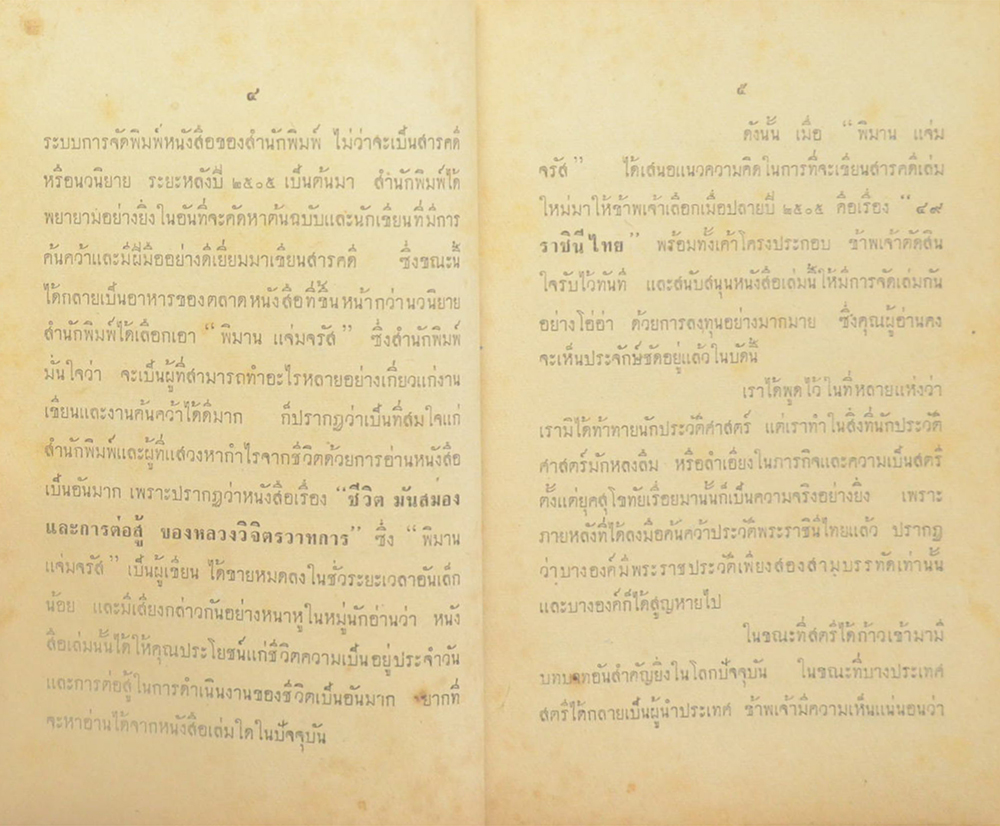 ๔
ระบบการจัดพิมพ์หนังสือของสำนักพิมพ์ ไม่ว่าจะเป็นสารคดี
หรือนวนิยาย ระยะหลังปี ๒๕๐๕ เป็นต้นมา สำนักพิมพ์ได้
พยายามอย่างยิ่งในอันที่จะคัดหาต้นฉบับและนักเขียนที่มีการ
ค้นคว้าและมีฝีมืออย่างดีเยี่ยมมาเขียนสารคดี ซึ่งขณะนี้
ได้กลายเป็นอาหารของตลาดหนังสือที่ขึ้นหน้ากว่านวนิยาย
สำนักพิมพ์ได้เลือกเอา “พิมาน แจ่มจรัส” ซึ่งสำนักพิมพ์
มั่นใจว่า จะเป็นผู้ที่สามารถทำอะไรหลายอย่างเกี่ยวแก่งาน
เขียนและงานค้นคว้าได้ดีมาก ก็ปรากฏว่าเป็นที่สมใจแก่
สำนักพิมพ์และผู้ที่แสวงหากำไรจากชีวิตด้วยการอ่านหนังสือ
เป็นอันมาก เพราะปรากฏว่าหนังสือเรื่อง “ชีวิต มันสมอง
และการต่อสู้ ของหลวงวิจิตรวาทการ” ซึ่ง “พิมาน
แจ่มจรัส” เป็นผู้เขียน ได้ขายหมดลงในชั่วระยะเวลาอันเล็ก
น้อย และมีเสียงกล่าวกันอย่างหนาหูในหมู่นักอ่านว่า หนัง
สือเล่มนั้นได้ให้คุณประโยชน์แก่ชีวิตความเป็นอยู่ประจำวัน
และการต่อสู้ในการดำเนินงานของชีวิตเป็นอันมาก ยากที่
จะหาอ่านได้จากหนังสือเล่มใดในปัจจุบัน
๕
ดังนั้น เมื่อ “พิมาน แจ่ม
จรัส” ได้เสนอแนวความคิดในการที่จะเขียนสารคดีเล่ม
ใหม่มาให้ข้าพเจ้าเลือกเมื่อปลายปี ๒๕๐๕ คือเรื่อง “๔๙
ราชินีไทย” พร้อมทั้งเค้าโครงประกอบ ข้าพเจ้าตัดสิน
ใจรับไว้ทันที และสนับสนุนหนังสือเล่มนี้ให้มีการจัดเล่มกัน
อย่างโอ่อ่า ด้วยการลงทุนอย่างมากมาย ซึ่งคุณผู้อ่านคง
จะเห็นประจักษ์ชัดอยู่แล้วในบัดนี้
เราได้พูดไว้ในที่หลายแห่งว่า
เรามิได้ท้าทายนักประวัติศาสตร์ แต่เราทำในสิ่งที่นักประวัติ
ศาสตร์มักหลงลืม หรือลำเอียงในภารกิจและความเป็นสตรี
ตั้งแต่ยุคสุโขทัยเรื่อยมานั้นก็เป็นความจริงอย่างยิ่ง เพราะ
ภายหลังที่ได้ลงมือค้นคว้าประวัติพระราชินีไทยแล้ว ปรากฏ
ว่าบางองค์มีพระราชประวัติเพียงสองสามบรรทัดเท่านั้น
และบางองค์ก็ได้สูญหายไป
ในขณะที่สตรีได้ก้าวเข้ามามี
บทบาทอันสำคัญยิ่งในโลกปัจจุบัน ในขณะที่บางประเทศ
สตรีได้กลายเป็นผู้นำประเทศ ข้าพเจ้ามีความเห็นแน่นอนว่า